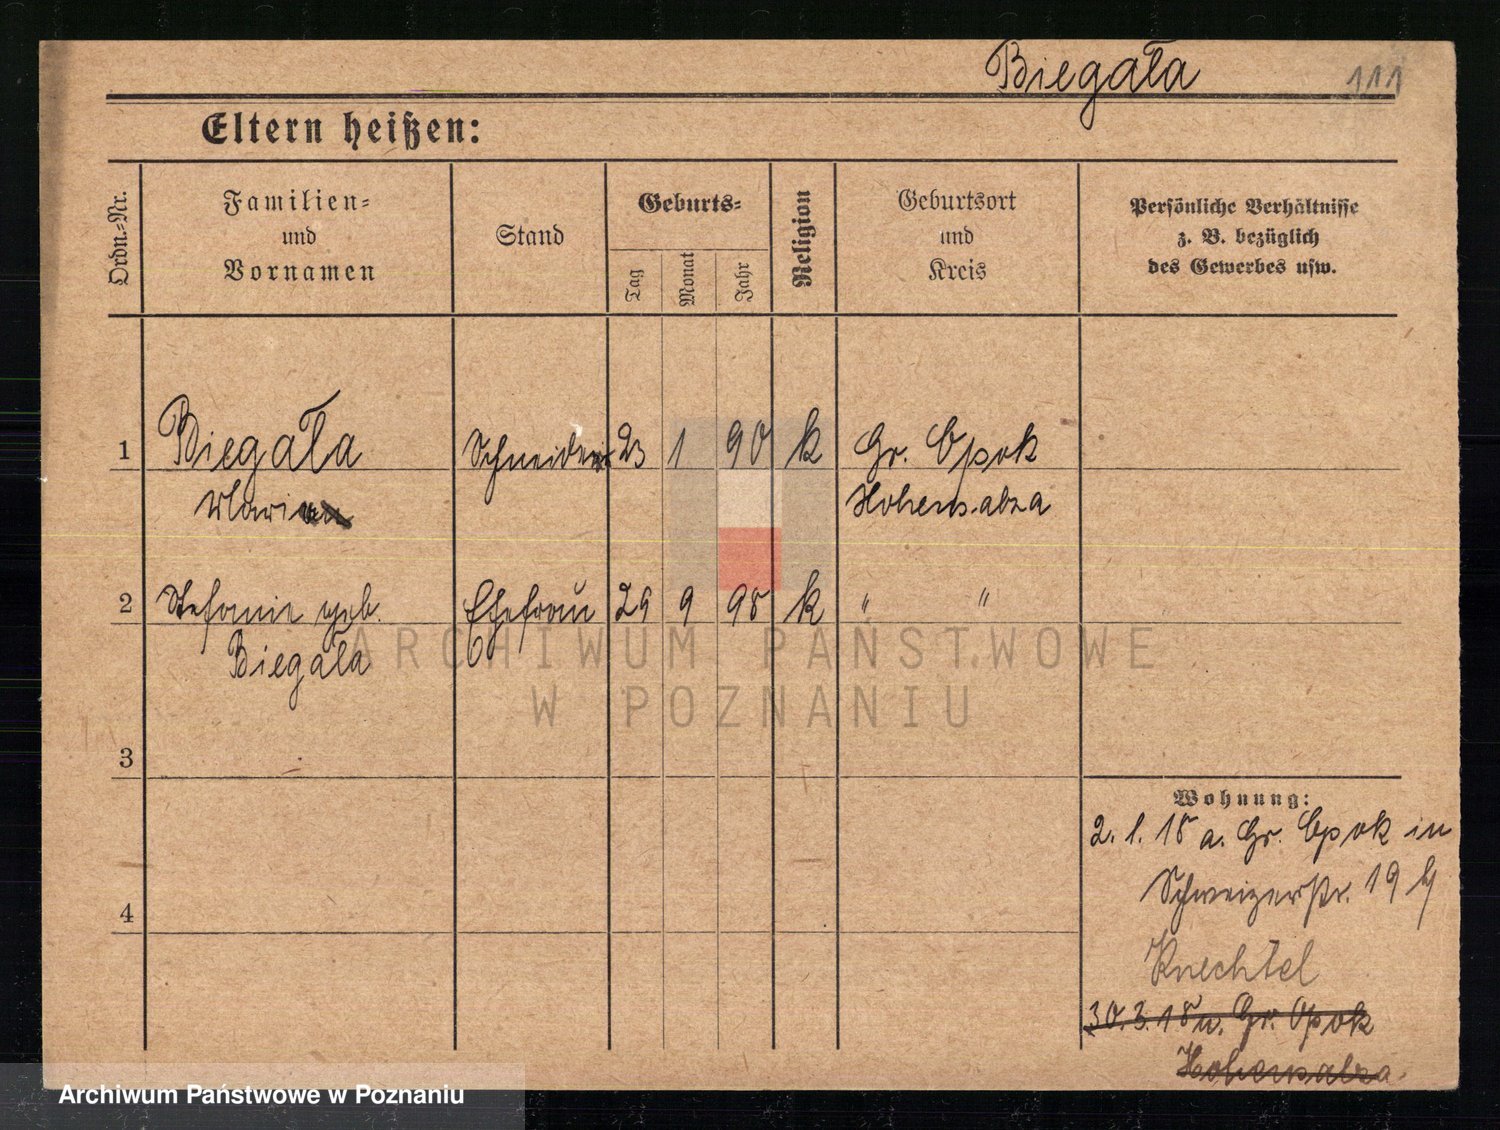 Biegała 111
Eltern heißen:
Ordn.-Nr.
Familien-
und
Vornamen
Stand
Geburts-
Tag
Monat
Jahr
Religion
Geburtsort
und
Kreis
Persönliche Verhältnisse
z. B. bezüglich
des Gewerbes usw.
1 Biegała Schneider 23 1 90 k Gr. Opok
Marian Hohensalza
2 Stefanie geb. Ehefrau 29 9 98 k " "
Biegala
ARCHIWUM PAŃSTWOWE
W POZNANIU
3
Wohnung:
2. 1. 18 a. Gr. Opok in
Schweizerstr. 19
4
Knechtel
30. 3. 18 n. Gr. Opok
Hohensalza
Archiwum Państwowe w Poznaniu